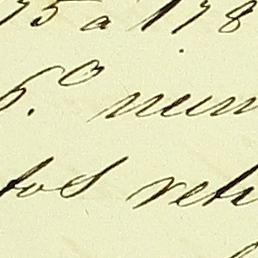 75 a 178
6.º num
tos retr